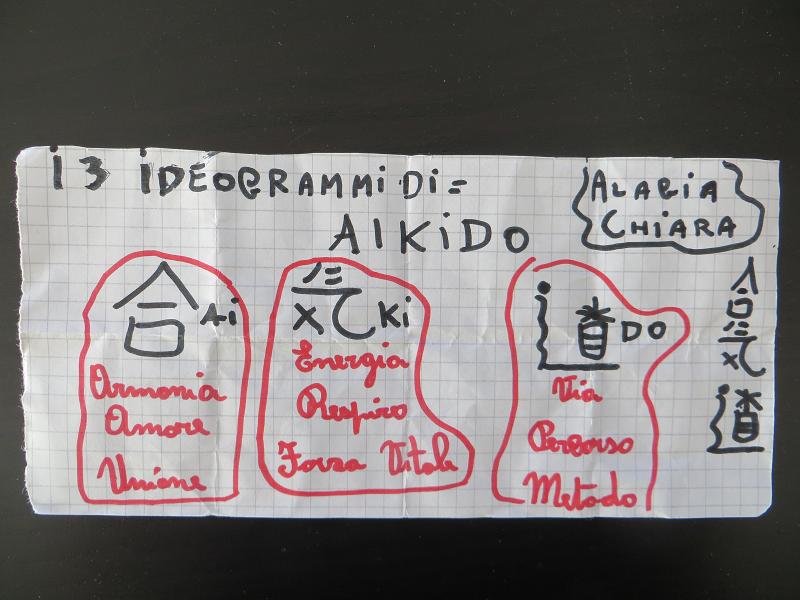 i 3 iDEOGRAMMi Di =
AIKiDO
ALAGIA
CHiARA
合 Ai
Armonia
Amore
Unione
気 Ki
Energia
Respiro
Forza Vitale
道 DO
Via
Percorso
Metodo
合
気
道